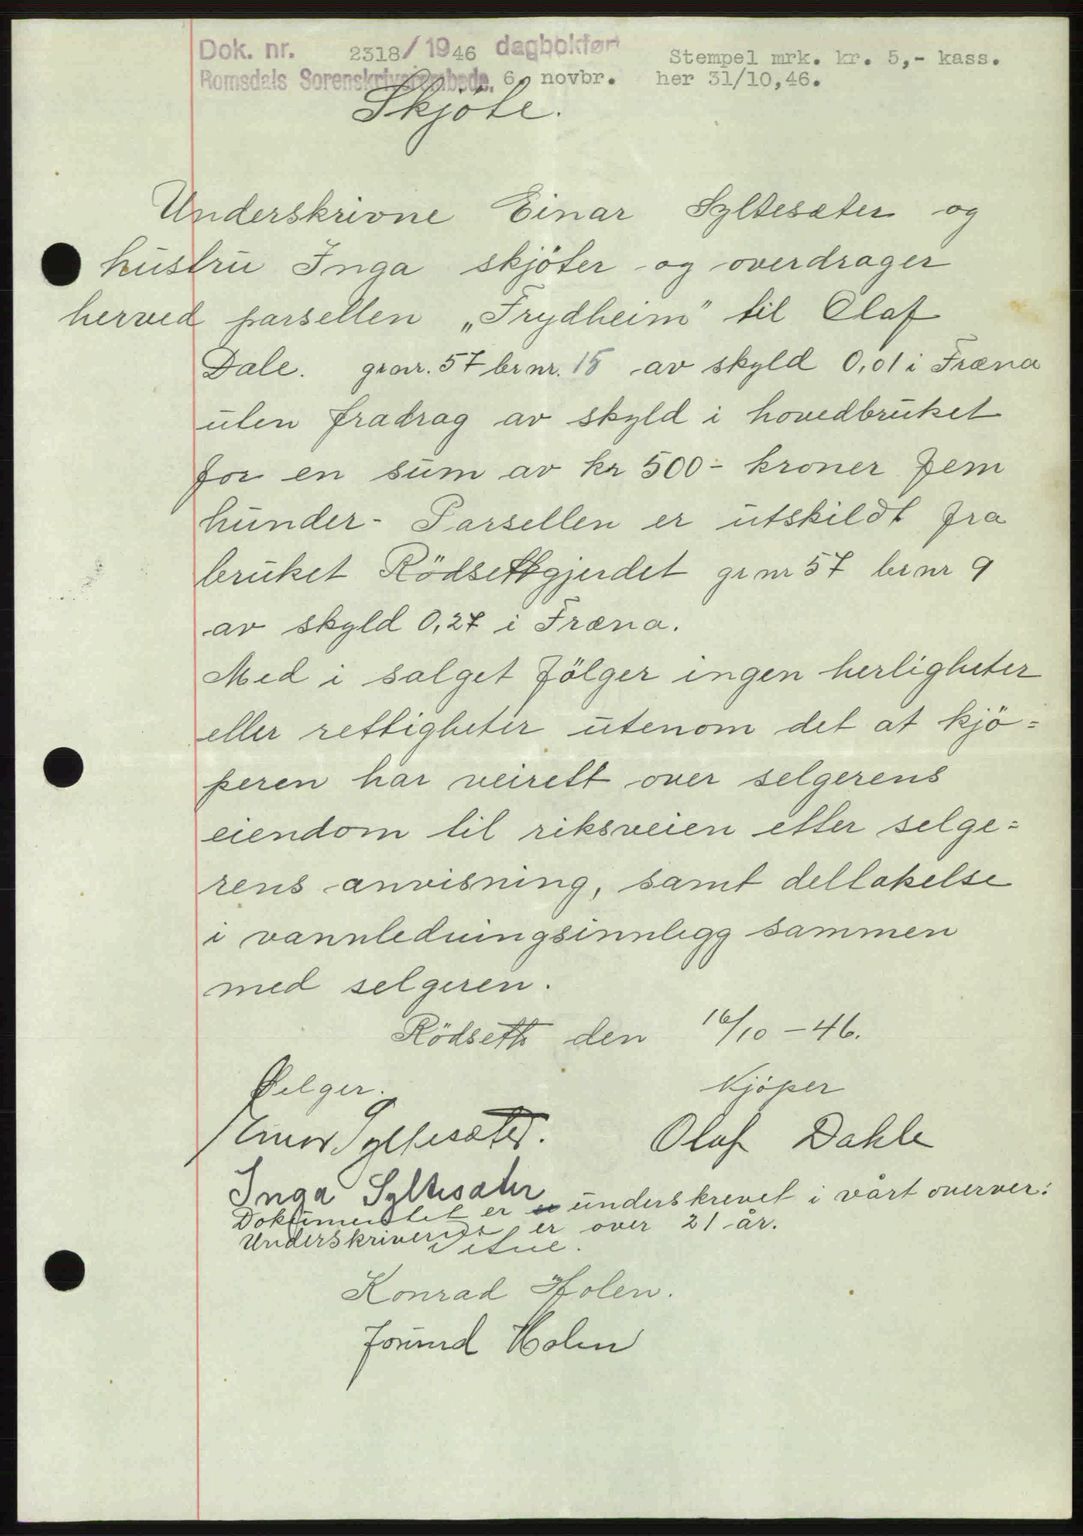 Dok. nr. 2318/1946 dagbokført Stempel mrk. kr. 5,- kass.
Romsdals Sorenskriverembede, 6. novbr. her 31/10,46.
Skjöte.
Underskrivne Einar Syltesæter og
hustru Inga skjöter og overdrager
herved parsellen „Frydheim" til Olaf
Dale. grnr. 57 brnr. 15 av skyld 0,01 i Fræna
uten fradrag av skyld i hovedbruket
for en sum av kr 500- kroner fem
hunder- Parsellen er utskildt fra
bruket Rödsettgjerdet grnr 57 brnr 9
av skyld 0,27 i Fræna.
Med i salget fölger ingen herligheter
eller rettigheter utenom det at kjö=
peren har veirett over selgerens
eiendom til riksveien etter selge=
rens anvisning, samt deltakelse
i vannledningsinnlegg sammen
med selgeren.
Rödseth den 16/10-46.
Selger. Kjöper
Einar Syltesæter. Olaf Dahle
Inga Syltesæter
Dokumentet er underskrevet i vårt overver:
Underskriverne er over 21 år.
Vitne.
Konrad Holen.
Jorund Holen